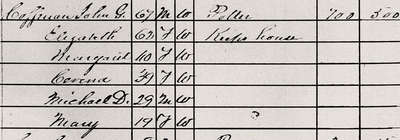 Coffman John G. 67 M W Potter 700 500
Elizabeth 63 F W Keeps house
Margaret 40 F W
39 F W
Michael D. 29 M W
Mary 19 F W